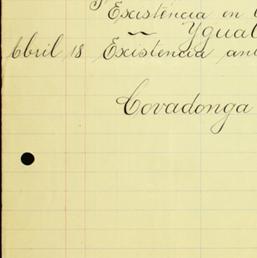 Existencia en
Ygual
Abril 18 Existencia an
Covadonga